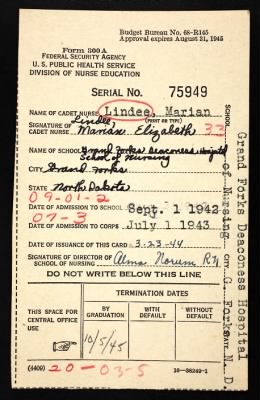 Budget Bureau No. 68-R145
Approval expires August 31, 1945
Form 300 A
FEDERAL SECURITY AGENCY
U. S. PUBLIC HEALTH SERVICE
DIVISION OF NURSE EDUCATION
SERIAL NO. 75949
NAME OF CADET NURSE Lindee, Marian
(PRINT OR TYPE)
SIGNATURE OF CADET NURSE Lindee, Marian Elizabeth 33
NAME OF SCHOOL Grand Forks Deaconess Hospital School of Nursing
CITY Grand Forks
STATE North Dakota
09-01-2
DATE OF ADMISSION TO SCHOOL Sept. 1 1942
07-3
DATE OF ADMISSION TO CORPS July 1 1943
DATE OF ISSUANCE OF THIS CARD 3-23-44
SIGNATURE OF DIRECTOR OF SCHOOL OF NURSING Alma Norum RN
DO NOT WRITE BELOW THIS LINE
THIS SPACE FOR CENTRAL OFFICE USE
TERMINATION DATES
BY GRADUATION
WITH DEFAULT
WITHOUT DEFAULT
10/5/45
(4409)
20-03-5
16-38249-1
SCHOOL Grand Forks Deaconess Hospital
of Nursing CITY G. Forks STATE N. D.